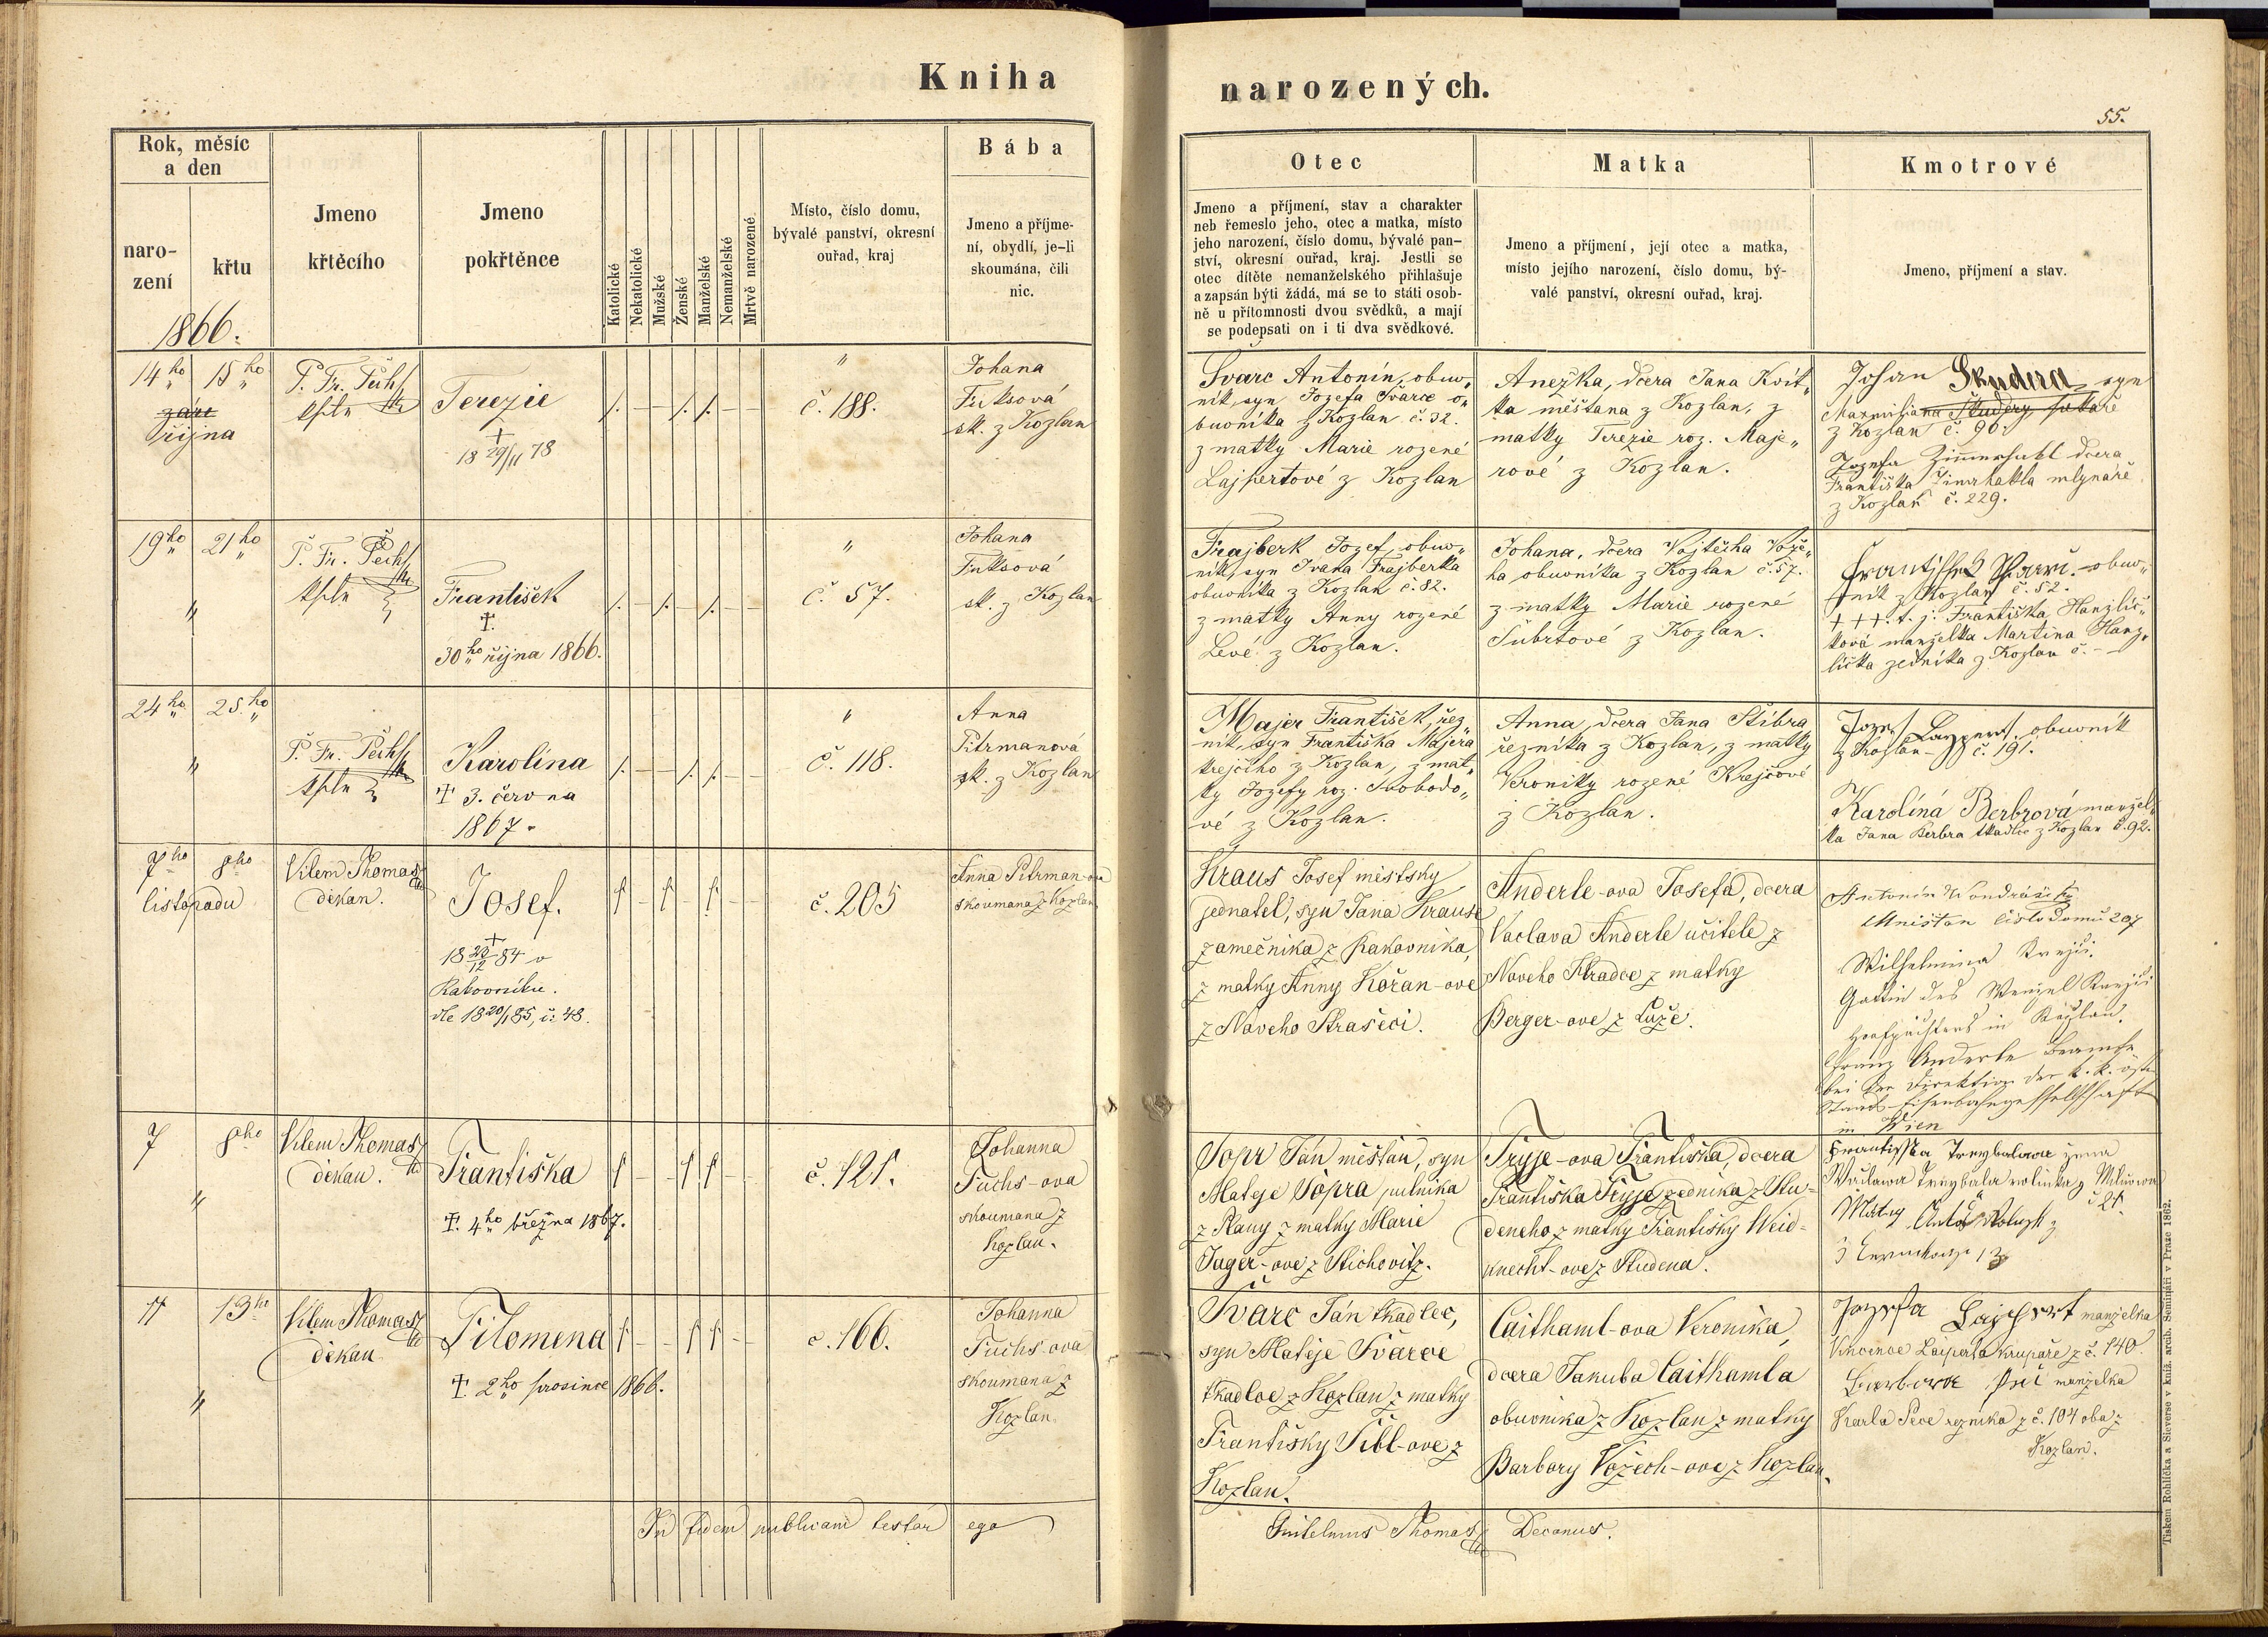 Kniha
narozených.
55.
Rok, měsíc
a den
naro-
zení
křtu
1866.
Jmeno
křtěcího
Jmeno
pokřtěnce
Katolické
Nekatolické
Mužské
Ženské
Manželské
Nemanželské
Mrtvě narozené
Místo, číslo domu,
bývalé panství, okresní
ouřad, kraj
Bába
Jmeno a příjme-
ní, obydlí, je-li
skoumána, čili
nic.
Otec
Jmeno a příjmení, stav a charakter
neb řemeslo jeho, otec a matka, místo
jeho narození, číslo domu, bývalé pan-
ství, okresní ouřad, kraj. Jestli se
otec dítěte nemanželského přihlašuje
a zapsán býti žádá, má se to státi osob-
ně u přítomnosti dvou svědků, a mají
se podepsati on i ti dva svědkové.
Matka
Jmeno a příjmení, její otec a matka,
místo jejího narození, číslo domu, bý-
valé panství, okresní ouřad, kraj.
Kmotrové
Jmeno, příjmení a stav.
14ho 15ho
září
října
P. Fr. Pech
kpln
Terezie
†
18 29/11 78
/. — — /. /. — —
"
č. 188.
Johana
Fuksová
sk. z Kozlan
Švarc Antonín, obuv„
ník, syn Jozefa Švarce o„
buvníka z Kozlan č. 32.
z matky Marie rozené
Lajpertové z Kozlan
Anežka, dcera Jana Kvít„
ka měšťana z Kozlan, z
matky Terezie roz. Maje„
rové z Kozlan.
Johan Skudera syn
Maxmiliana Škudery
z Kozlan č. 90.
Jozefa Zimmerhakl dcera
Františka Zimrhakla mlynáře
z Kozlan č. 229.
19ho 21ho
"
P. Fr. Pech
kpln
František
†.
30ho října 1866.
/. — /. — /. — —
"
č. 57.
Johana
Fuksová
sk. z Kozlan
Frajberk Jozef, obuv„
ník, syn Ivana Frajberka
obuvníka z Kozlan č. 82.
z matky Anny rozené
Levé z Kozlan.
Johana, dcera Vojtěcha Vože„
ha obuvníka z Kozlan č. 57.
z matky Marie rozené
Šubrtové z Kozlan.
Frantisshek obuv„
ník z Kozlan č. 52.
+++. t. j. Františka Hanzlíč„
ková manželka Martina Hanz„
líčka zedníka z Kozlan č. –
24ho 25.ho
"
P. Fr. Pech
kpln
Karolína
† 3. června
1867.
/. — — /. /. — —
"
č. 118.
Anna
Pitrmanová
sk. z Kozlan
Majer František, řez„
ník, syn Františka Majera
krejčího z Kozlan, z mat„
ky Jozefy roz. Svobodo„
vé z Kozlan.
Anna, dcera Jana Stíbra
řezníka z Kozlan, z matky
Veroniky rozené Krejčové
z Kozlan.
Jozef Laypert, obuvník
z Kozlan č. 191.
Karolína Berbrová manžel„
ka Jana Berbra tkadlce z Kozlan č. 92.
7ho 8ho
listopadu
Vilem Thomas
děkan.
Josef.
†
18 28/12 84 v
Rakovníku.
dle 18 20/1 85, č: 48.
č. 205
Anna Pitrman-ova
skoumana z Kozlan
Kraus Josef městsky
jednatel, syn Jana Krause
zamečnika z Rakovnika,
z matky Anny Kořan-ove
z Noveho Strašeci.
Anderle-ova Josefa, dcera
Vaclava Anderle učitele z
Noveho Hradce z matky
Berger-ove z Luže.
Antonín Wondráček
čislo domu 207
Wilhelmina Krejči
Gattin des Wenzel Krejči
in Kozlan.
Franz Anderle Beamte
bei der Direktion der k. k. öst.
Staats-Eisenbahngesellschaft
in Wien
7 8ho
"
Vilem Thomas
děkan.
Františka
†. 4ho března 1867.
č. 121.
Johanna
Fuchs-ova
skoumana z
Kozlan.
Sopr Jan měštan, syn
Mateje Sopra
z Rany z matky Marie
Jager-ove z Stichovitz.
Tryje-ova Františka, dcera
Františka Tryje zednika z Stu-
deneho z matky Františky Weid-
knecht-ove z Studena.
Frantisska Trnybalowa žena
Wáclawa Trnybala rolníka z
č 21.
11 13ho
"
Vilem Thomas
děkan
Filomena
†. 2ho prosince 1866.
c. 166.
Johanna
Fuchs-ova
skoumana z
Kozlan.
Švarc Jan tkadlec,
syn Matěje Švarce
tkadlce z Kozlan z matky
Františky Šibl-ove z
Kozlan.
Caithaml-ova Veronika,
dcera Jakuba Caithamla
obuvnika z Kozlan z matky
Barbory Vožech-ove z Kozlan.
Jozefa Lajpert manželka
Vincence Laiperta krupaře z č. 140.
Barbora manželka
Karla Peve řeznika z č. 104 oba z
Kozlan.
In fidem publicam testor ego
Guilelmus Thomas Decanus.
Tiskem Rohlíčka a Sieverse v kníž. arcib. Semináři v Praze 1862.